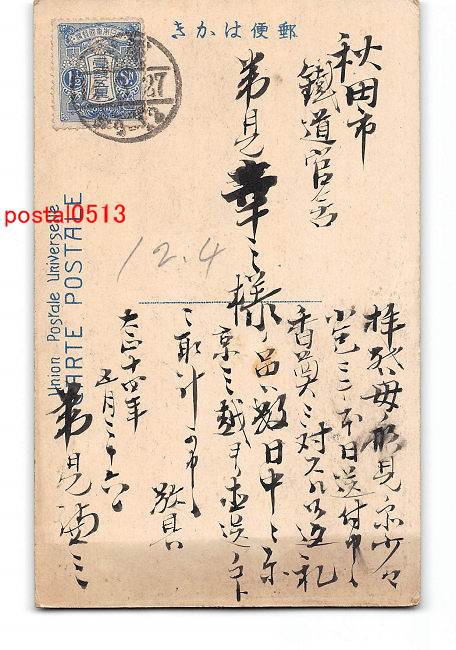 郵便はかき
秋田市
鐵道官舎
弟見幸三様
拝啓母ノ形見分少々
小包ニテ本日送付申
香奠ニ対スル返礼
ノ品ハ数日中ニ
京三越ヨリ直送ノコト
ニ取計
敬具
大正十四年
五月二十六日
弟見
Union Postale Universelle
CARTE POSTALE
12.4
postal0513